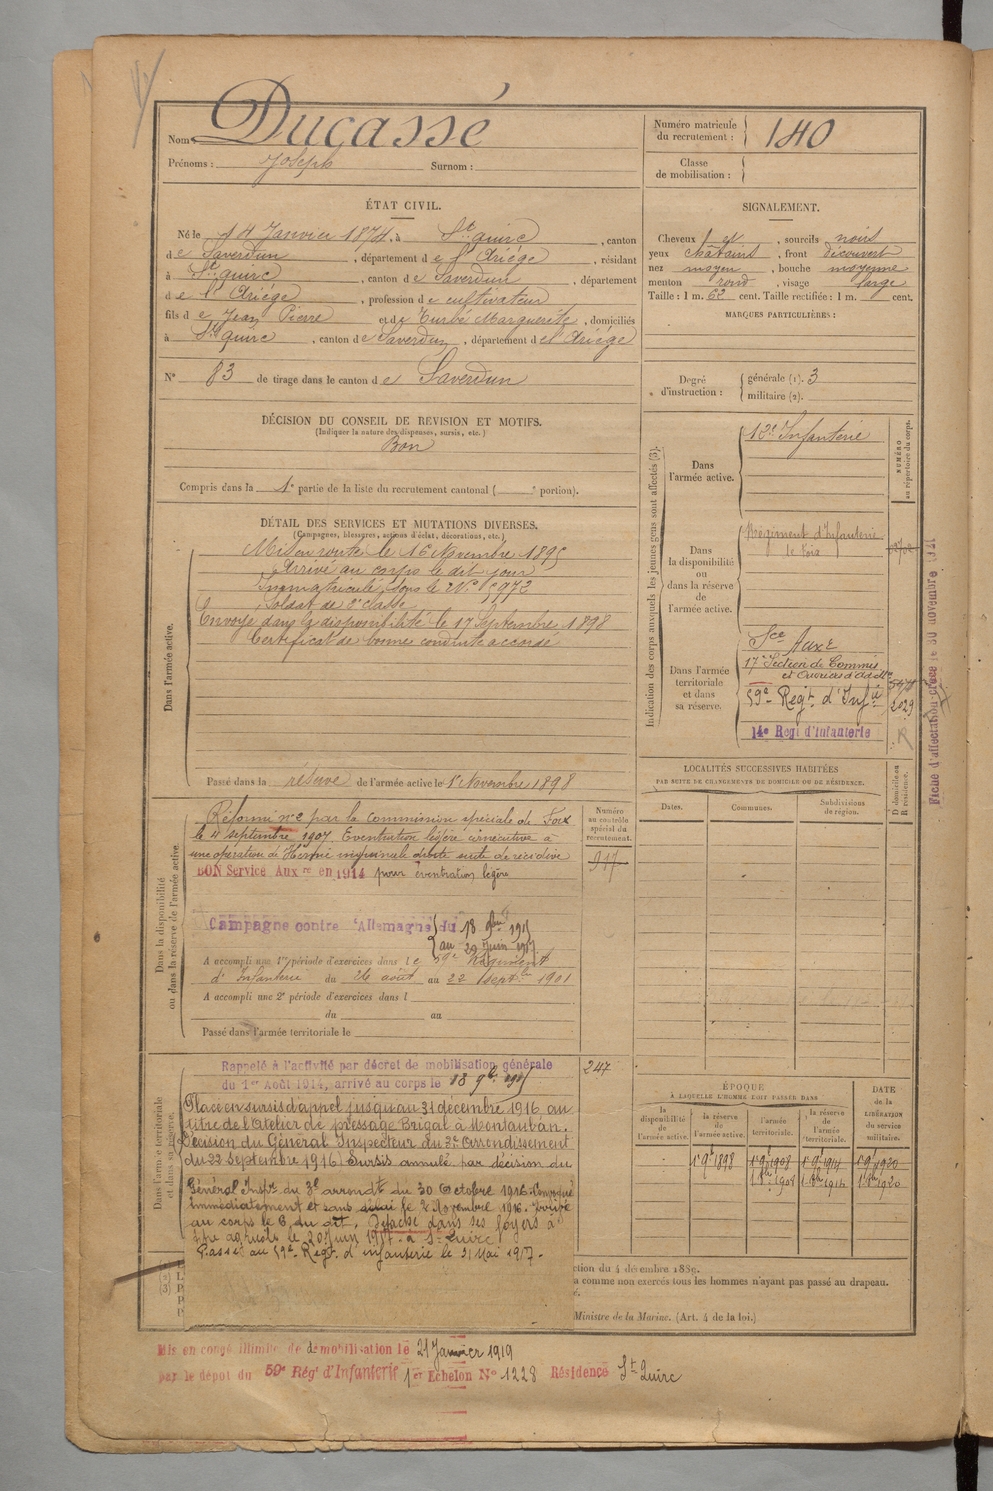 Nom : Ducassé
Prénoms : Joseph Surnom :
Numéro matricule du recrutement : 140
Classe de mobilisation :
ÉTAT CIVIL.
Né le 14 Janvier 1874, à St quirc, canton
de Saverdun, département de l'Ariége, résidant
à St quirc, canton de Saverdun, département
de l'Ariége, profession de cultivateur
fils de Jean Pierre et de Turbé Marguerite, domiciliés
à St quirc, canton de Saverdun, département de l'Ariége
N° 83 de tirage dans le canton de Saverdun
SIGNALEMENT.
Cheveux et, sourcils noirs
yeux chatains, front découvert
nez moyen, bouche moyenne
menton rond, visage large
Taille : 1 m. 62 cent. Taille rectifiée : 1 m. cent.
MARQUES PARTICULIÈRES :
Degré d'instruction : générale (1). 3
militaire (2).
DÉCISION DU CONSEIL DE REVISION ET MOTIFS.
(Indiquer la nature des dispenses, sursis, etc.)
Bon
Compris dans la 1e partie de la liste du recrutement cantonal ( e portion).
DÉTAIL DES SERVICES ET MUTATIONS DIVERSES.
(Campagnes, blessures, actions d'éclat, décorations, etc.)
Dans l'armée active.
Mis en route le 16 Novembre 1895
Arrivé au corps le dit jour
Immatriculé sous le N° 972
Soldat de 2e classe
Envoyé dans la disponibilité le 17 Septembre 1898
Certificat de bonne conduite accordé
Passé dans la réserve de l'armée active le 1er Novembre 1898
Indication des corps auxquels les jeunes gens sont affectés (3).
NUMÉRO au répertoire du corps.
Dans l'armée active.
12e Infanterie
Dans la disponibilité ou dans la réserve de l'armée active.
Régiment d'Infanterie
de Foix
Dans l'armée territoriale et dans sa réserve.
Sce Auxre
17e Section de Commis
et Ouvriers d'Adon
59e Regt d'Infie
2029
14e Regt d'Infanterie
LOCALITÉS SUCCESSIVES HABITÉES
PAR SUITE DE CHANGEMENTS DE DOMICILE OU DE RÉSIDENCE.
Dates. Communes. Subdivisions de région. D domicile ou R résidence.
Dans la disponibilité ou dans la réserve de l'armée active.
Numéro au contrôle spécial du recrutement.
Réformé n° 2 par la Commission spéciale de Foix
le 4 septembre 1907. Eventration légère consécutive à
une opération de Hernie inguinale droite suite de récidive
BON Service Auxre en 1914 pour éventration légère
Campagne contre l'Allemagne du 18 9bre 1915
au 20 Juin 1917
A accompli une 1re période d'exercices dans le 59e Régiment
d'Infanterie du 26 août au 22 septbre 1901
A accompli une 2e période d'exercices dans l
du au
Passé dans l'armée territoriale le
Dans l'armée territoriale et dans sa réserve.
Rappelé à l'activité par décret de mobilisation générale
du 1er Août 1914, arrivé au corps le 18 9bre 1915
247
Placé en sursis d'appel jusqu'au 31 décembre 1916 au
titre de l'Atelier de pressage Brigal à Montauban.
Décision du Général Inspecteur du 3e arrondissement
du 22 Septembre 1916. Sursis annulé par décision du
Général Inspr du 3e arrondt du 30 Octobre 1916. Convoqué
immédiatement et sans délai le 2 Novembre 1916. Arrivé
au corps le 6 du dit. Détaché dans ses foyers à
titre agricole le 20 Juin 1917 à St Quirc
Passé au 59e Regt d'infanterie le 31 Mai 1917.
ÉPOQUE
À LAQUELLE L'HOMME DOIT PASSER DANS
la disponibilité de l'armée active. la réserve de l'armée active. l'armée territoriale. la réserve de l'armée territoriale. DATE de la LIBÉRATION du service militaire.
1er 9e 1898 1er 9e 1908 1er 9e 1914 1er 9e 1920
ction du 4 décembre 1889.
a comme non exercés tous les hommes n'ayant pas passé au drapeau.
Ministre de la Marine. (Art. 4 de la loi.)
Mis en congé illimité de démobilisation le 21 Janvier 1919
par le dépôt du 59e Régt d'Infanterie 1er Echelon N° 1228 Résidence St Quirc